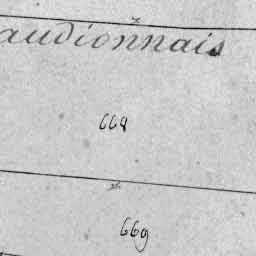 audionnais
668
669